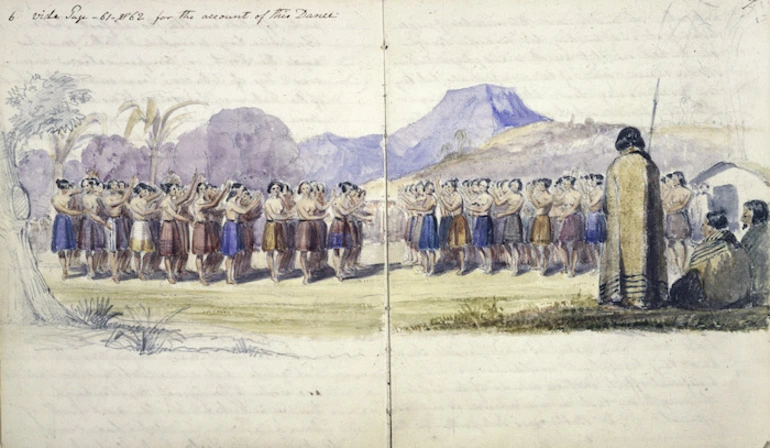 6 vide Page -61-&62 for the account of this Dance